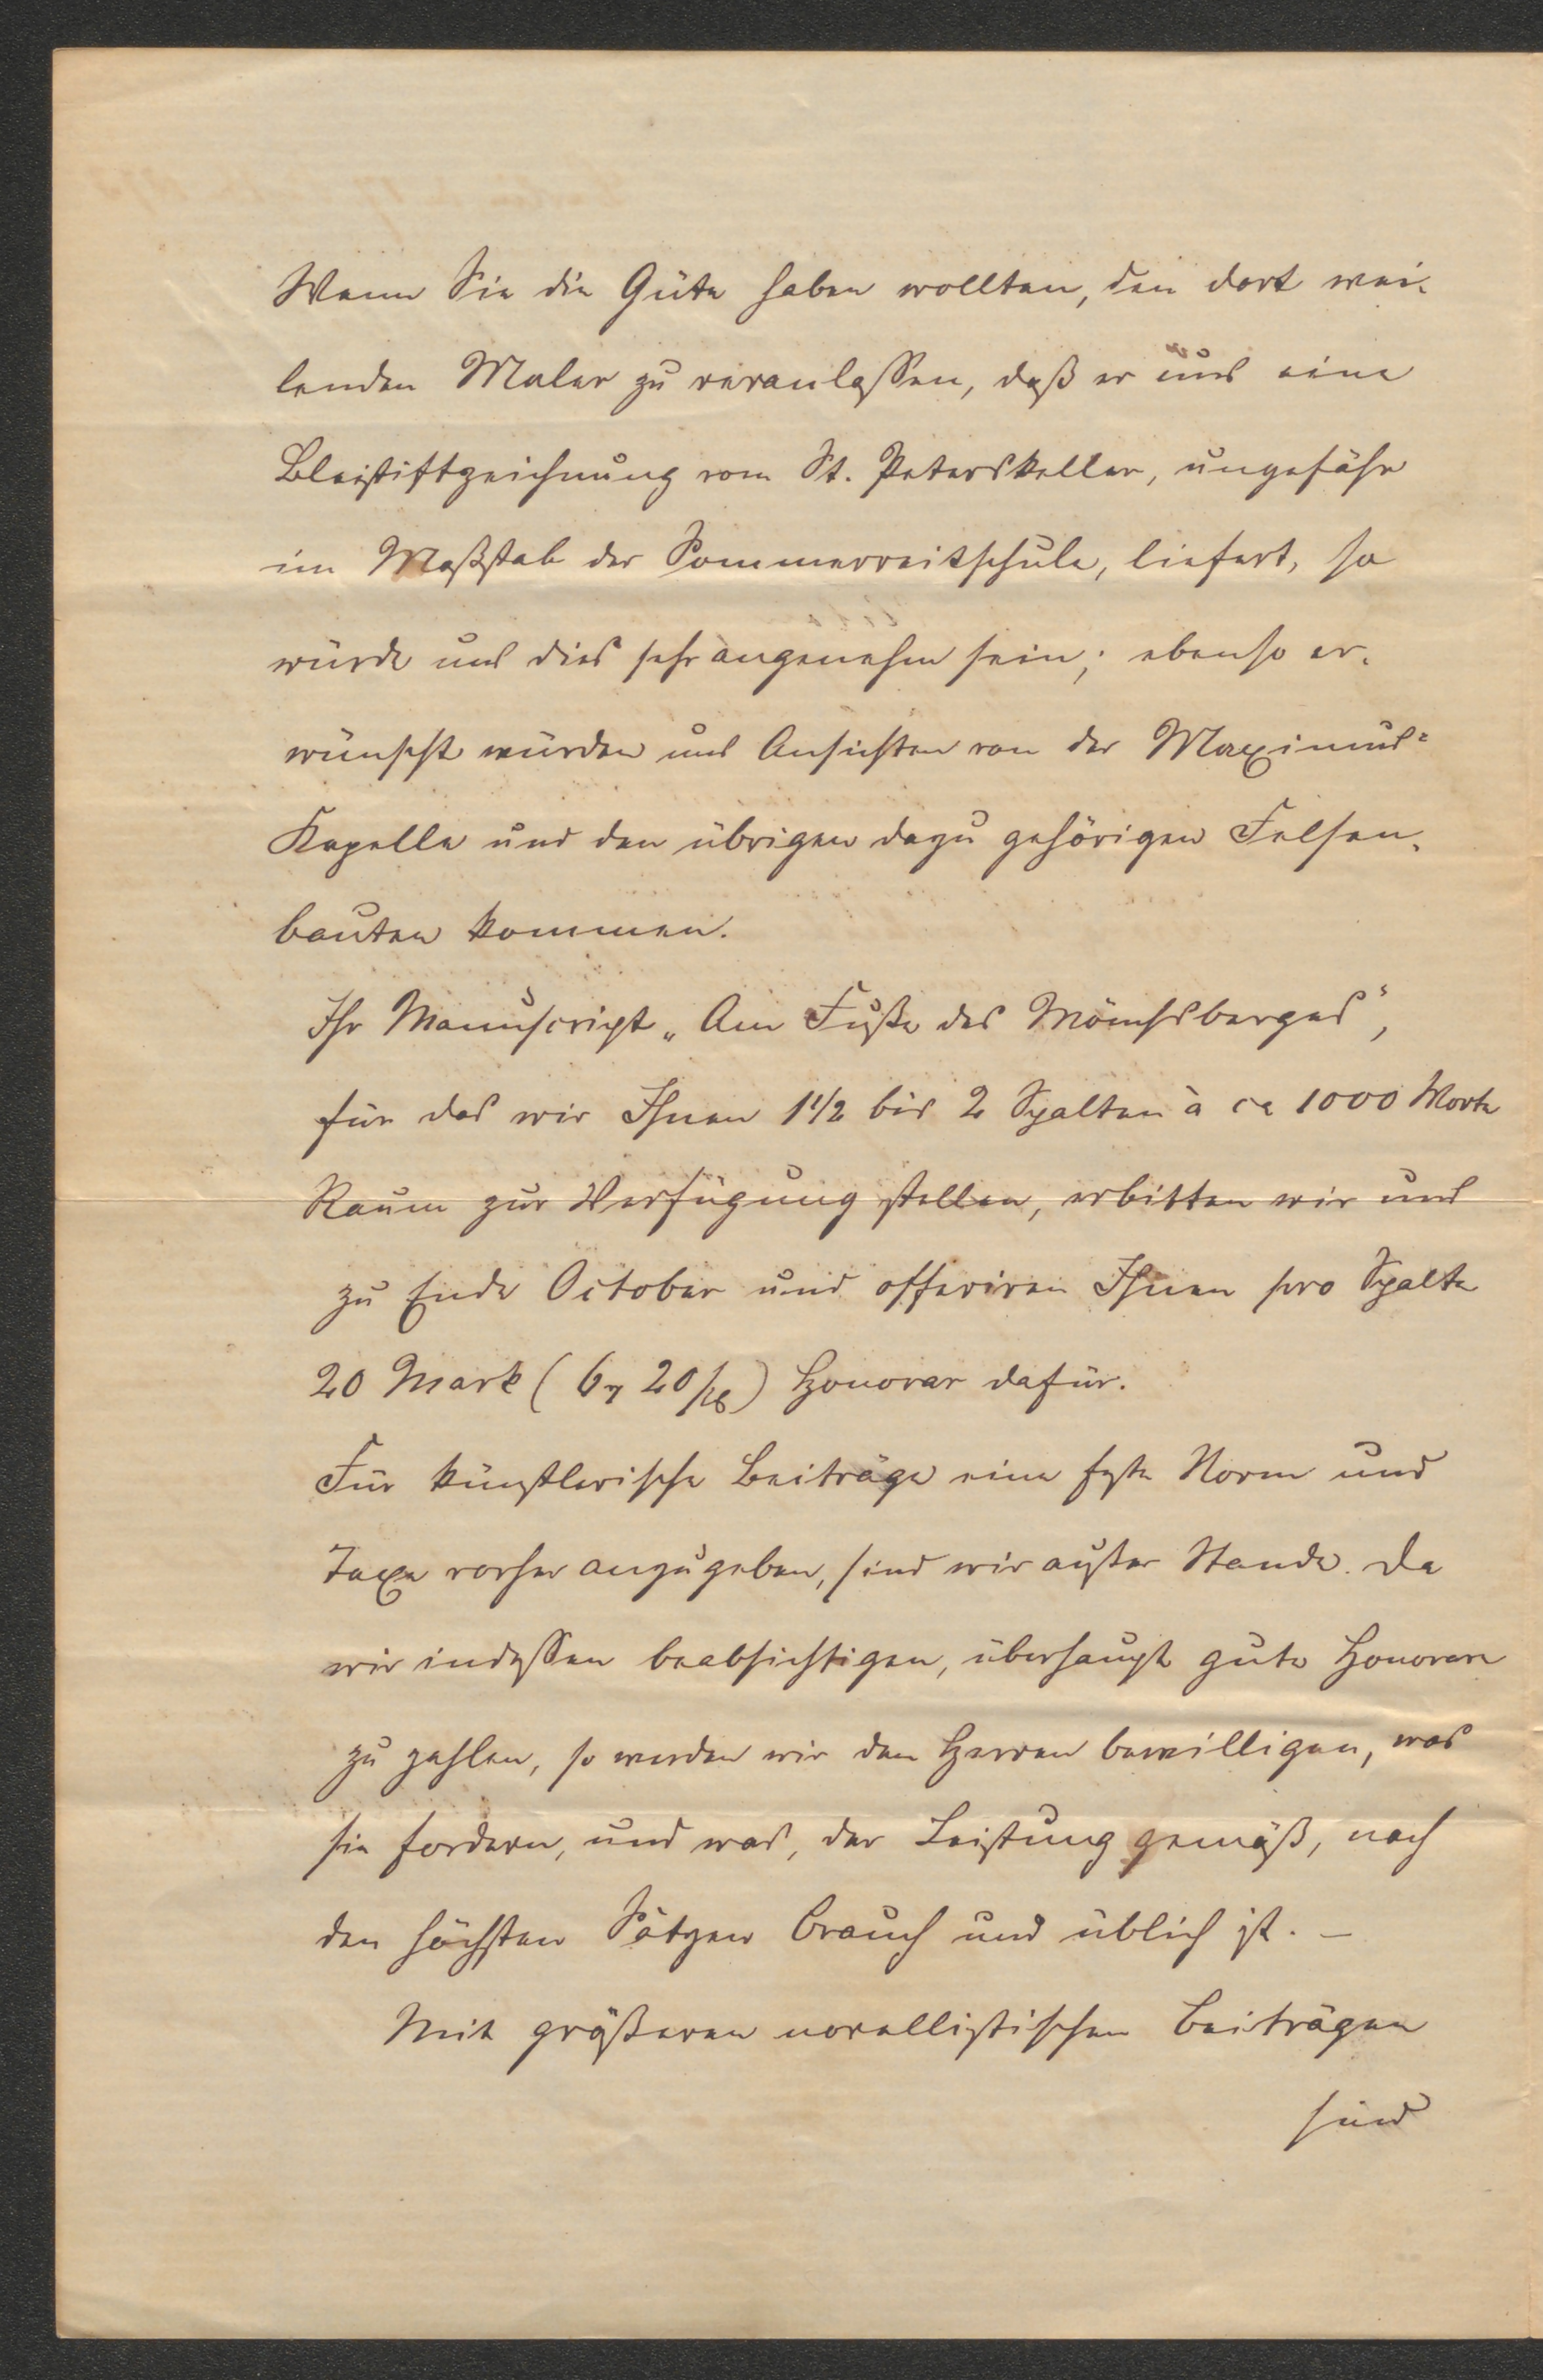 Wenn Sie die Güte haben wollten, den dort wei-
lenden Maler zu veranlassen, daß er uns eine
Bleistiftzeichnung vom St. Peterskeller, ungefähr
im Maßstab der Sommerreitschule, liefert, so
würde uns dies sehr angenehm sein; ebenso er-
wünscht würden uns Ansichten von der Maximus-
Kapelle und den übrigen dazu gehörigen Felsen-
bauten kommen.
Ihr Manuscript „Am Fuße des Mönchsberges“,
für das wir Ihnen 1 1/2 bis 2 Spalten à ca 1000 Worte
Raum zur Verfügung stellen, erbitten wir uns
zu Ende October und offeriren Ihnen pro Spalte
20 Mark (6 20) Honorar dafür.
Für künstlerische Beiträge eine feste Norm und
Taxe vorher anzugeben, sind wir außer Stande. Da
wir indessen beabsichtigen, überhaupt gute Honorare
zu zahlen, so werden wir den Herren bewilligen, was
sie fordern, und was, der Leistung gemäß, nach
den höchsten Sätzen Brauch und üblich ist. –
Mit größeren novellistischen Beiträgen
sind